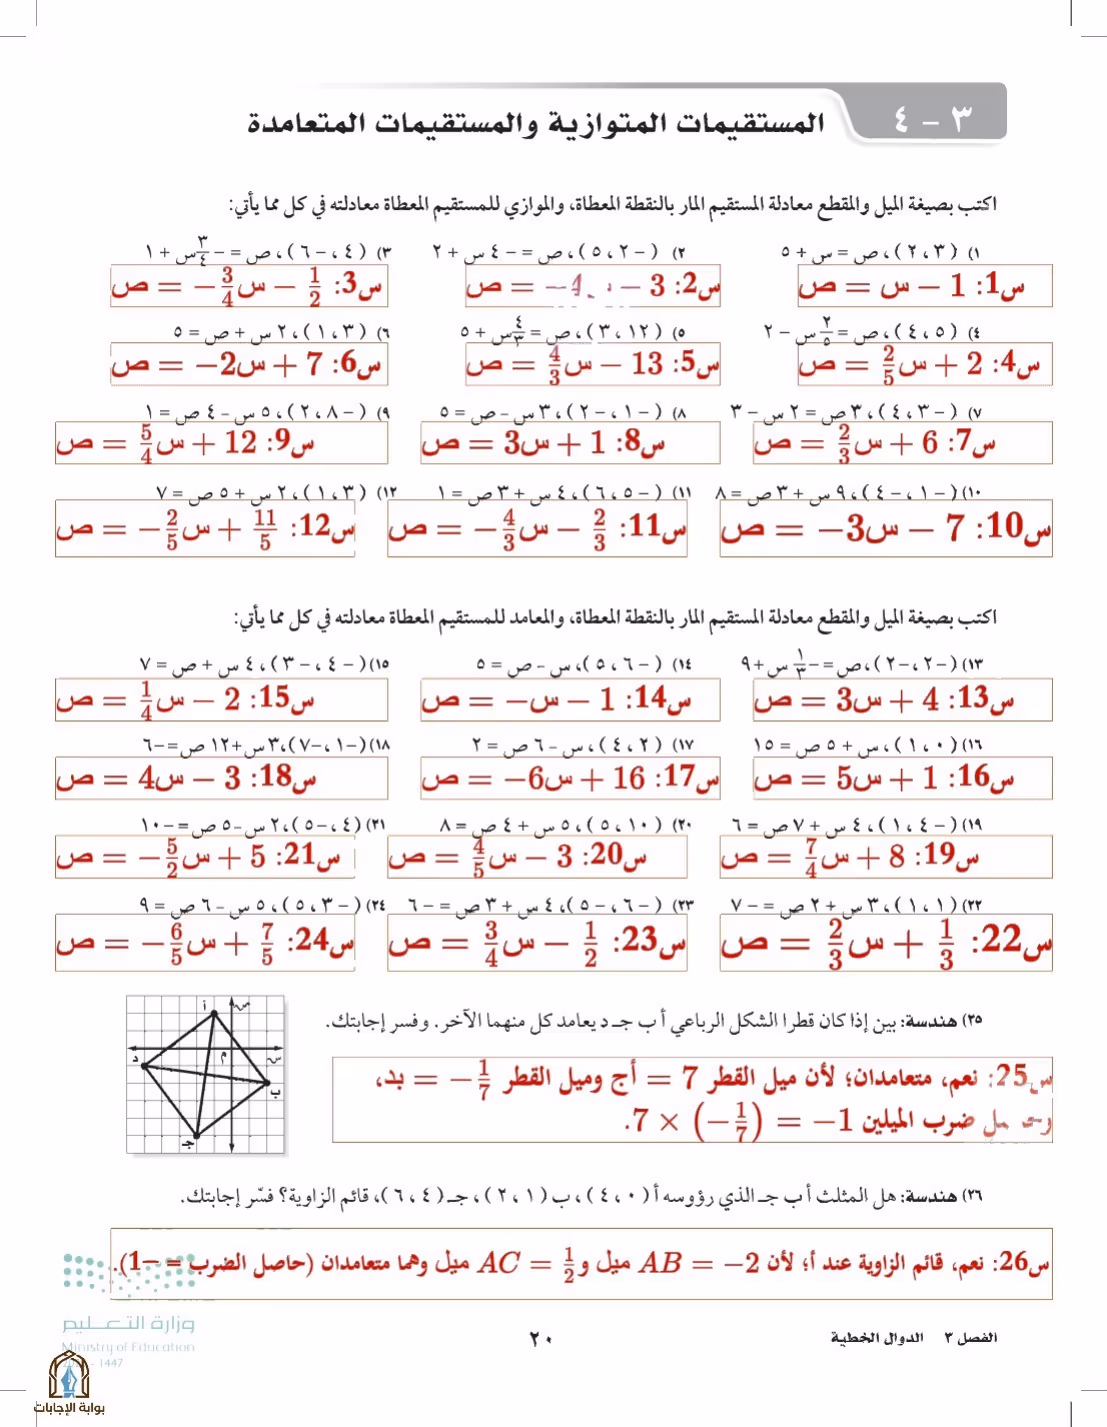 ٣ – ٤ المستقيمات المتوازية والمستقيمات المتعامدة
اكتب بصيغة الميل والمقطع معادلة المستقيم المار بالنقطة المعطاة، والموازي للمستقيم المعطاة معادلته في كل مما يأتي:
١) (٢،٣)، ص = س + ٥ ٢) (–٥،٢)، ص = –٤ س + ٢ ٣) (٤، –٦)، ص = –٣/٤ س + ١
س1: ص = س − 1 س2: ص = −4 − 3 س3: ص = −3/4 س − 1/2
٤) (٤،٥)، ص = ٢/٥ س – ٢ ٥) (٣،١٢)، ص = ٤/٣ س + ٥ ٦) (١،٣)، ٢ س + ص = ٥
س4: ص = 2/5 س + 2 س5: ص = 4/3 س − 13 س6: ص = −2س + 7
٧) (–٤،٣)، ٣ ص = ٢ س – ٣ ٨) (–١، –٢)، ٣ س – ص = ٥ ٩) (–٢،٨)، ٥ س – ٤ ص = ١
س7: ص = 2/3 س + 6 س8: ص = 3س + 1 س9: ص = 5/4 س + 12
١٠) (–١، –٤)، ٩ س + ٣ ص = ٨ ١١) (–٦،٥)، ٤ س + ٣ ص = ١ ١٢) (١،٣)، ٢ س + ٥ ص = ٧
س10: ص = −3س − 7 س11: ص = −4/3 س − 2/3 س12: ص = −2/5 س + 11/5
اكتب بصيغة الميل والمقطع معادلة المستقيم المار بالنقطة المعطاة، والمعامد للمستقيم المعطاة معادلته في كل مما يأتي:
١٣) (–٢، –٢)، ص = –١/٣ س + ٩ ١٤) (–٥،٦)، س – ص = ٥ ١٥) (–٤، –٣)، ٤ س + ص = ٧
س13: ص = 3س + 4 س14: ص = −س − 1 س15: ص = 1/4 س − 2
١٦) (١،٠)، س + ٥ ص = ١٥ ١٧) (٤،٢)، س – ٦ ص = ٢ ١٨) (–١، –٧)، ٣ س + ١٢ ص = –٦
س16: ص = 5س + 1 س17: ص = −6س + 16 س18: ص = 4س − 3
١٩) (–١،٤)، ٤ س + ٧ ص = ٦ ٢٠) (٥،١٠)، ٥ س + ٤ ص = ٨ ٢١) (٤، –٥)، ٢ س – ٥ ص = –١٠
س19: ص = 7/4 س + 8 س20: ص = 4/5 س − 3 س21: ص = −5/2 س + 5
٢٢) (١،١)، ٣ س + ٢ ص = –٧ ٢٣) (–٦، –٥)، ٤ س + ٣ ص = –٦ ٢٤) (–٥،٣)، ٥ س – ٦ ص = ٩
س22: ص = 2/3 س + 1/3 س23: ص = 3/4 س − 1/2 س24: ص = −6/5 س + 7/5
٢٥) هندسة: بين إذا كان قطرا الشكل الرباعي أ ب جـ د يعامد كل منهما الآخر. وفسر إجابتك.
ص أ د م س ب جـ
س25: نعم، متعامدان؛ لأن ميل القطر أج = 7 وميل القطر بد = −1/7،
ضرب الميلين 7 × (−1/7) = −1.
٢٦) هندسة: هل المثلث أ ب جـ الذي رؤوسه أ (٤،٠)، ب (٢،١)، جـ (٦،٤)، قائم الزاوية؟ فسّر إجابتك.
س26: نعم، قائم الزاوية عند أ؛ لأن ميل AB = −2 وميل AC = 1/2 وهما متعامدان (حاصل الضرب = −1).
وزارة التعليم
Ministry of Education
- 1447
الفصل ٣ الدوال الخطية ٢٠
بوابة الإجابات